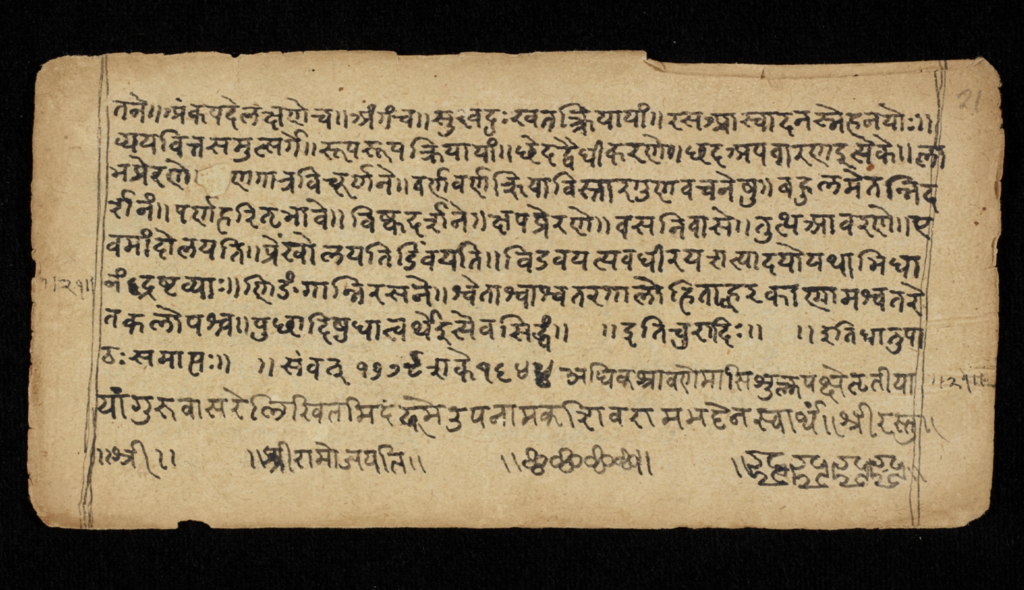 तने॥ अंक पदे लक्षणे च॥ अंगं च॥ सुख दुःख तत्क्रियायां॥ रस आस्वादनस्नेहनयोः॥
व्यय वित्तसमुत्सर्गे॥ रूप रूपक्रियायां॥ छेद द्वैधीकरणे॥ छद अपवारण इत्येके॥ ला
भ प्रेरणे व्रण गात्रविचूर्णने॥ वर्ण वर्णक्रियाविस्तारगुणवचनेषु॥ बहुलमेतन्निद
र्शनं॥ पर्ण हरितभावे॥ विष्क दर्शने॥ क्षप प्रेरणे॥ वस निवासे॥ तुत्थ आवरणे॥ ए
वमांदोलयति॥ प्रेंखोलयति डिंवयति॥ विडवय त्यवधीरय
नं द्रष्टव्याः॥ णिङंगान्निरसने॥ श्वेताश्वाश्वतरगालोहिताह्वरकाणामश्वतरे
तकलोपश्च॥ पुछादिषु धात्वर्थे इत्येव सिद्धं॥ ॥ इति चुरादिः॥ ॥ इति धातुपा
ठः समाप्तः॥ ॥ संवत् १७७९ शके १६४४ अधिकश्रावणेमासि शुक्लपक्षे तृतीया
यां गुरुवासरे लिखितमिदं उपनामक शिवरामभट्टेन स्वार्थं॥ श्रीरस्तु॥
॥श्री॥ ॥श्रीरामो जयति॥
॥२१॥
॥२१॥
21